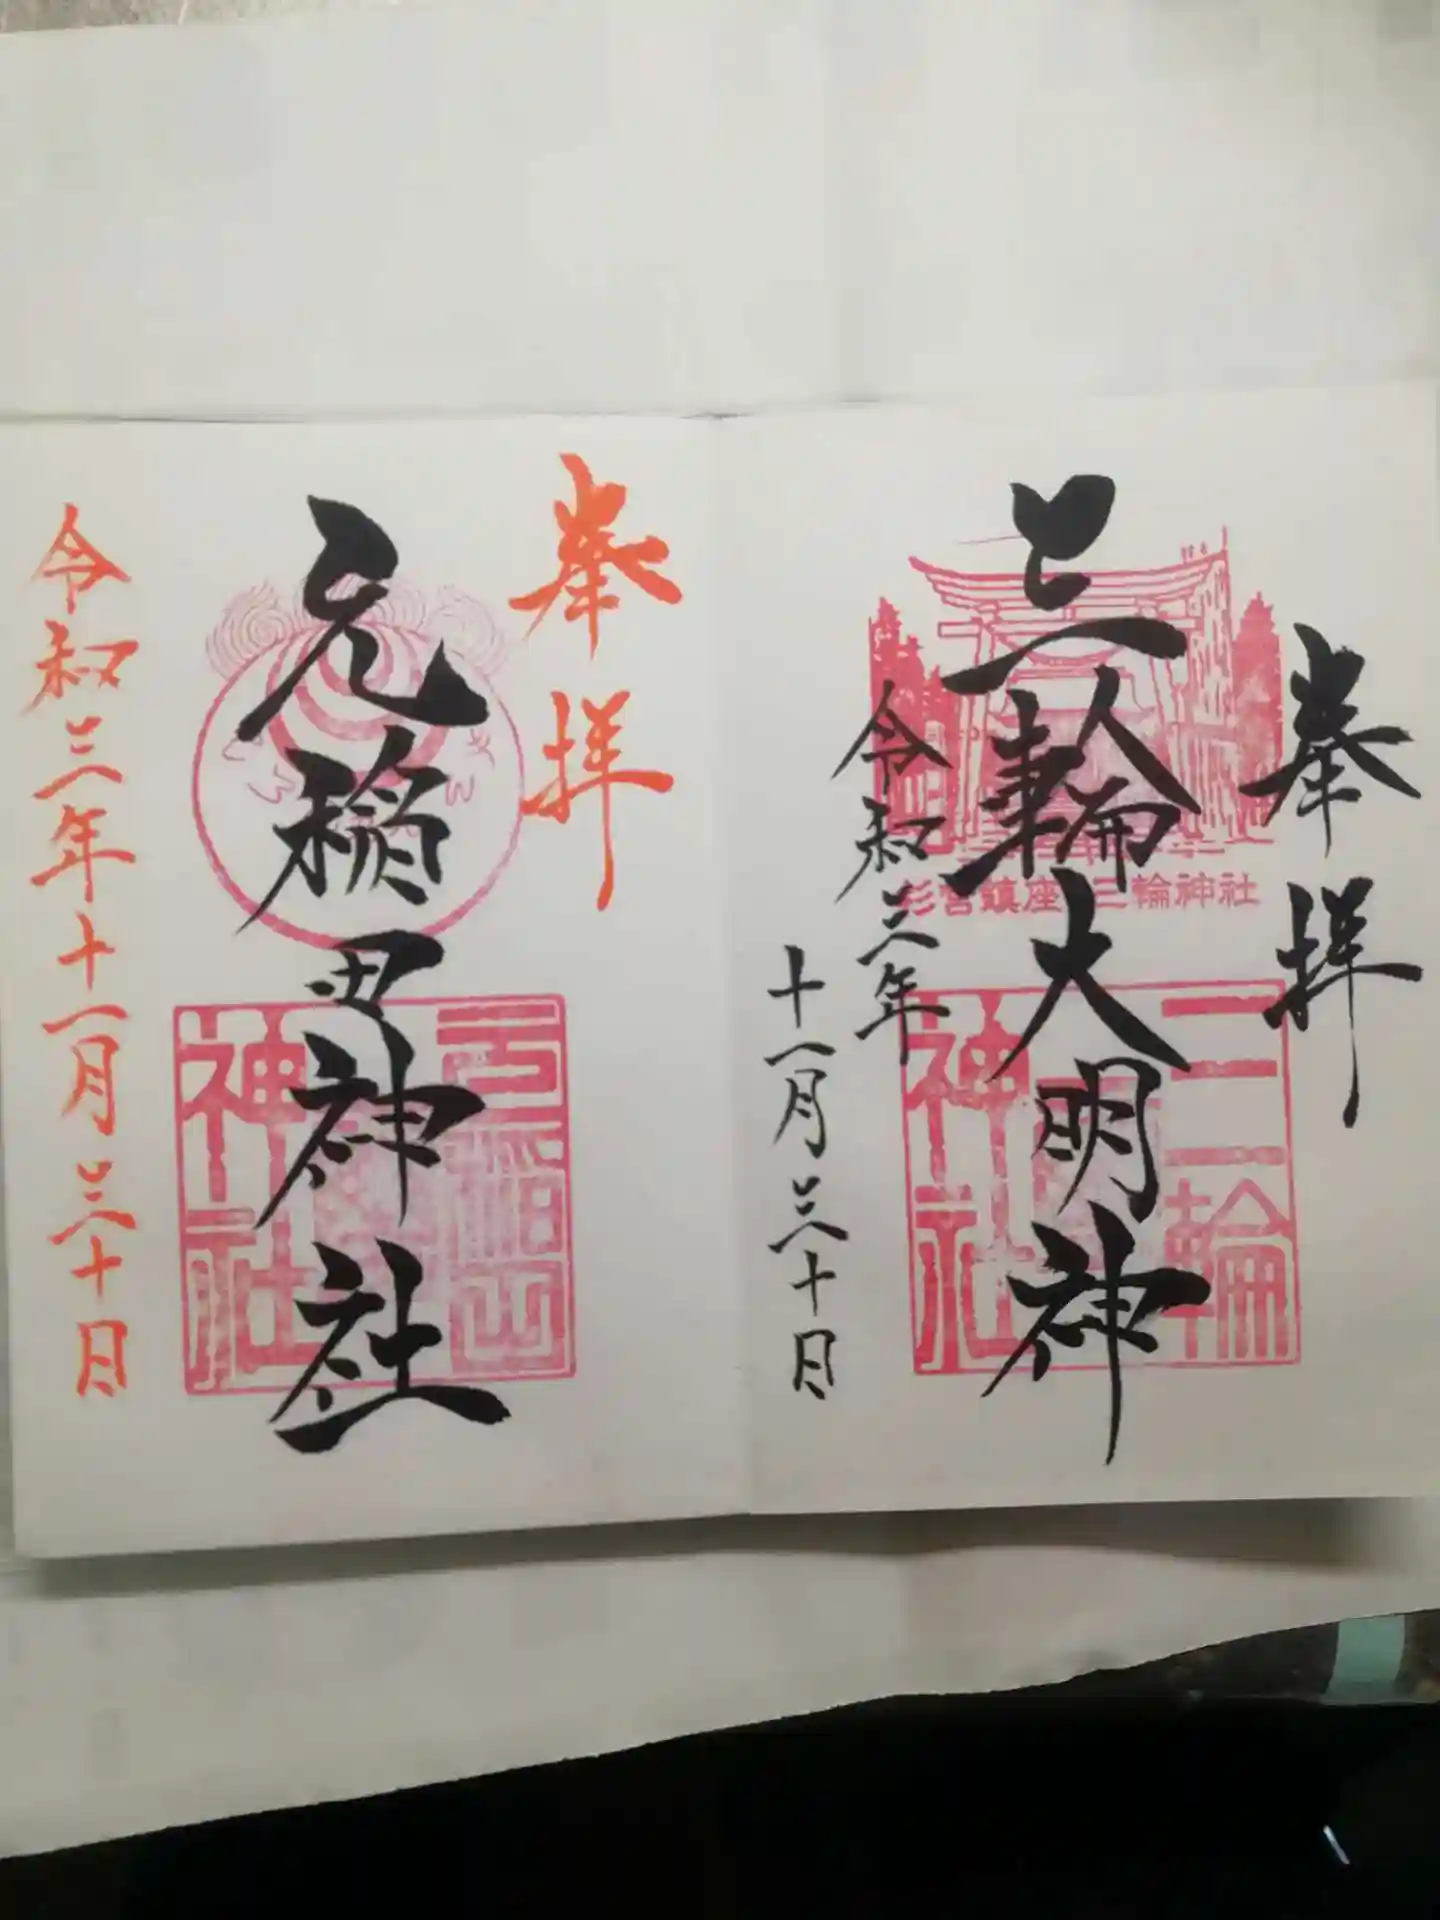 奉拝
三輪大明神
令和三年
十一月三十日
杉宮鎮座 三輪神社
三輪
神社
奉拝
元稲田神社
令和三年十一月三十日
元稲田
神社